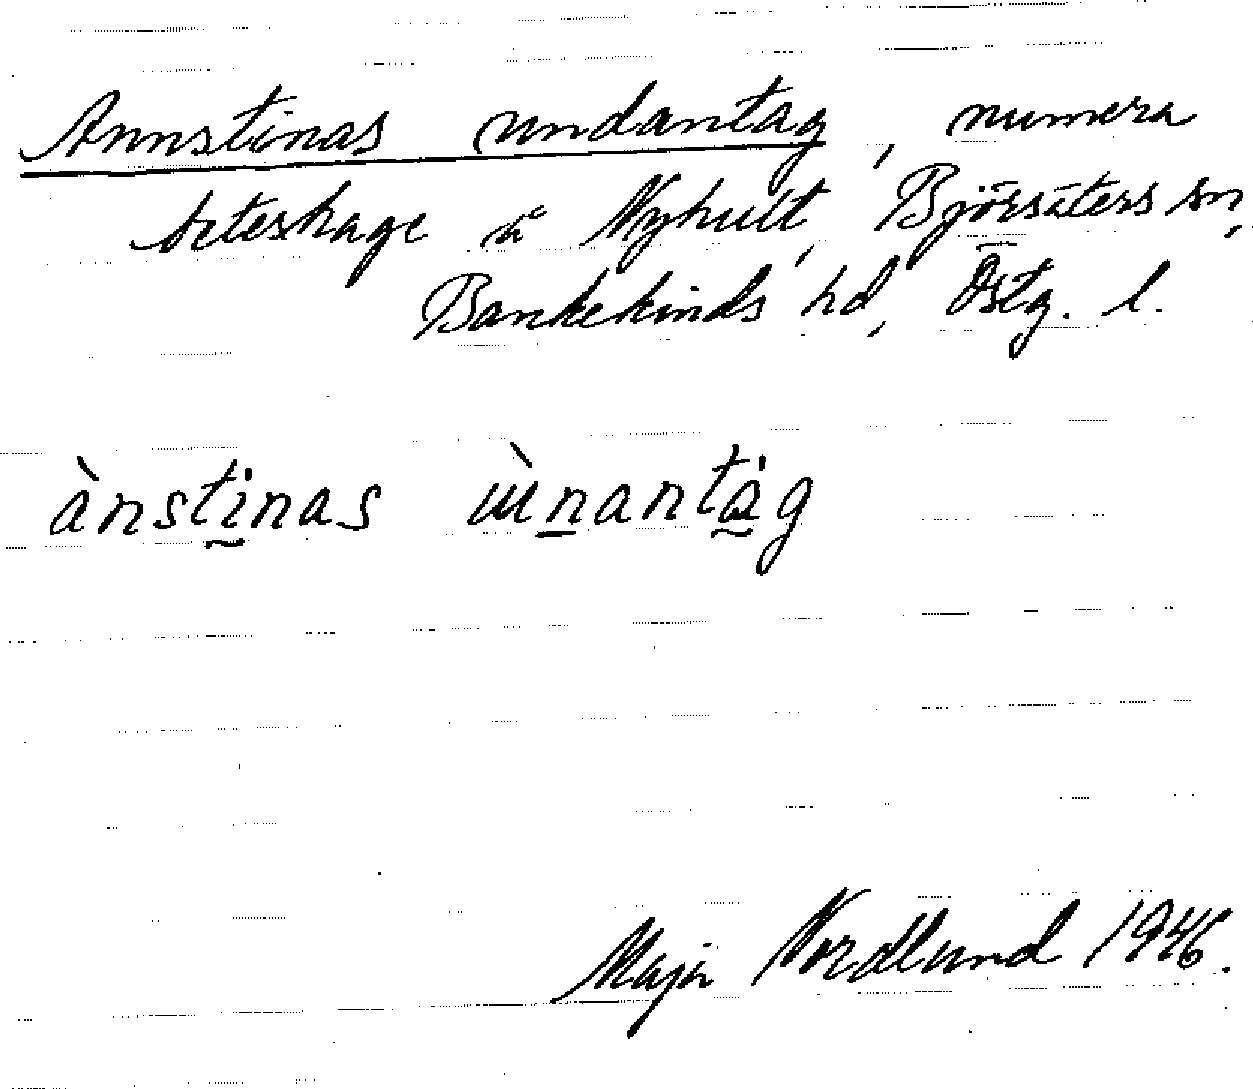 Annstinas undantag, numera
beteshage å Nyhult, Björsäters sn,
Bankekinds hd, Östg. l.
ànstinas ùnantȧg
Maja Nordlund 1946.